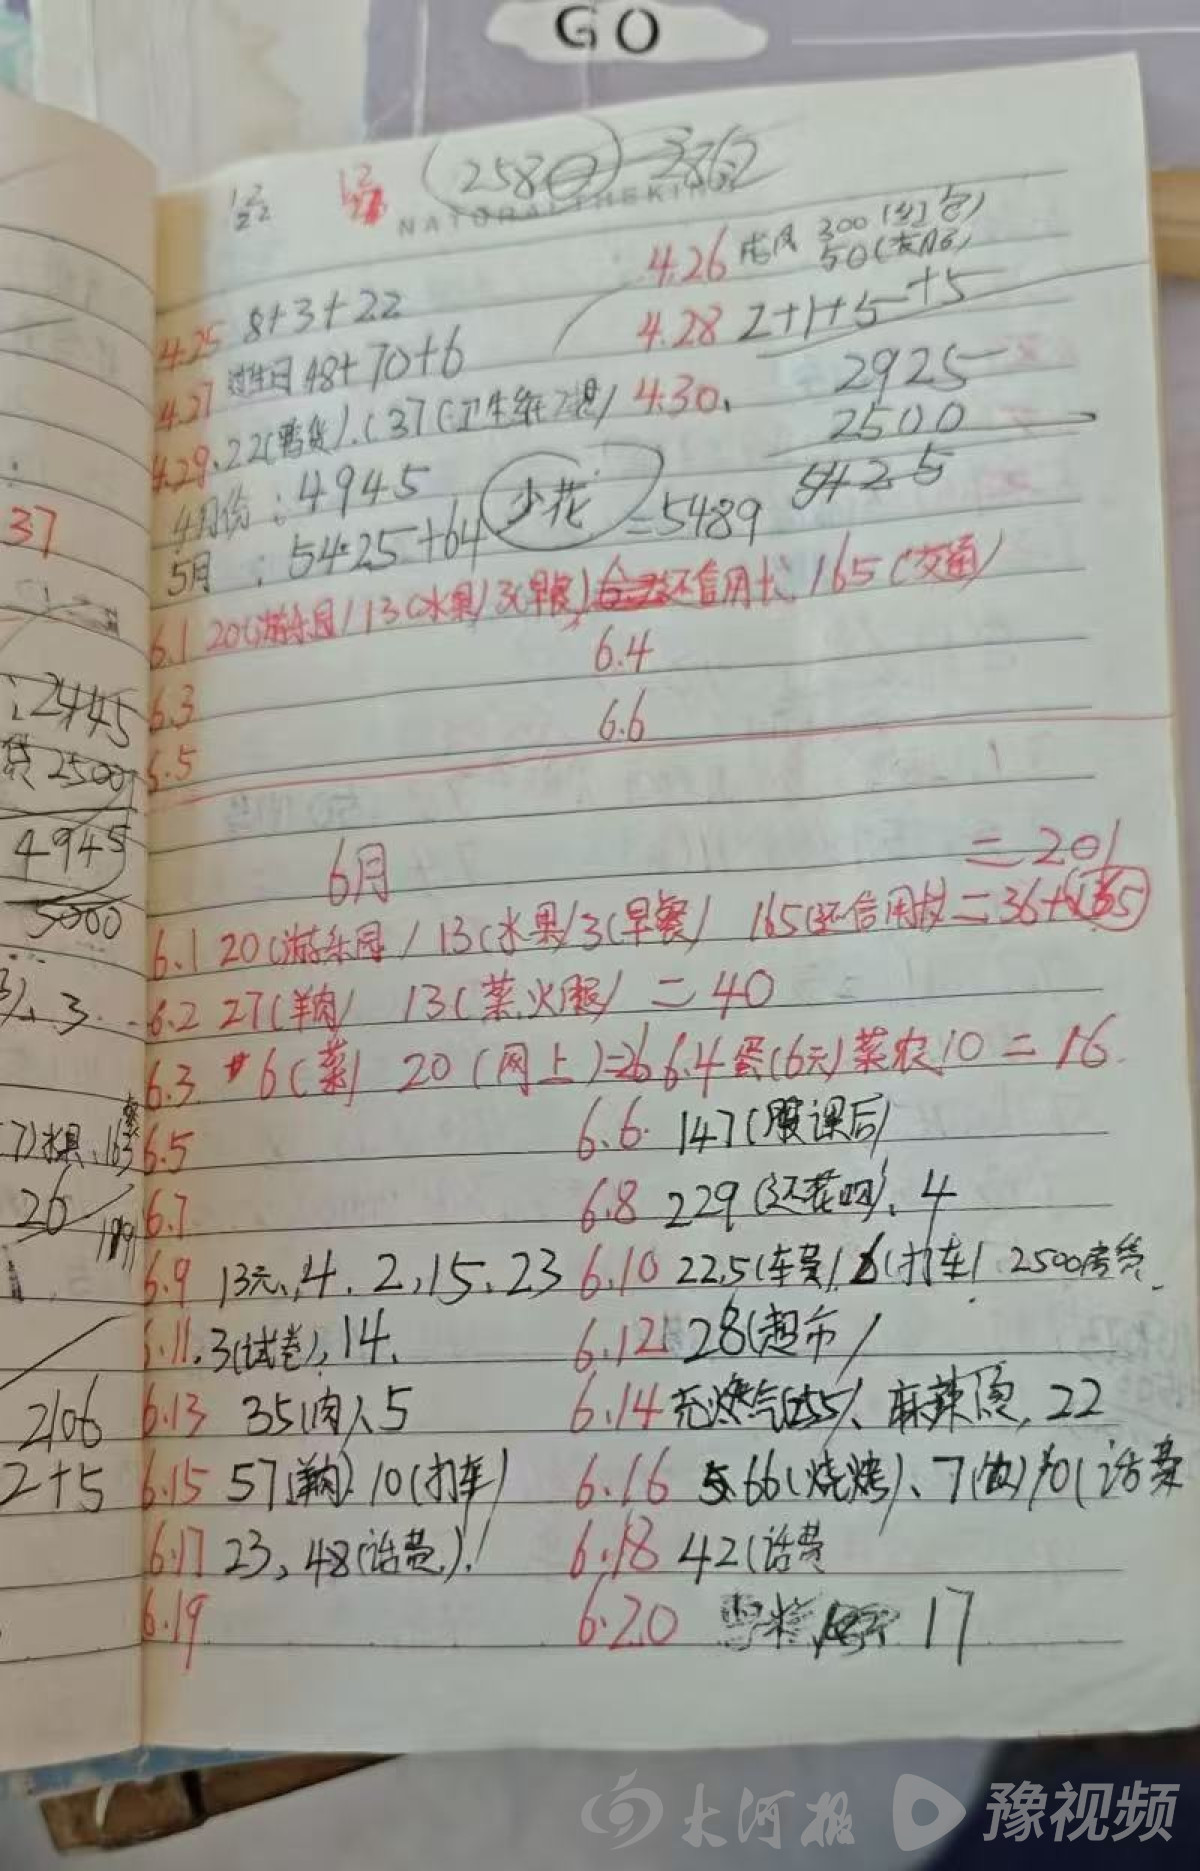 GO
2580
NATURAL THE KING
4.26 300(红包)
50(衣服)
4.25 8+3+22
4.28 2+1+5+5
4.27 过生日 48+70+6
2925
4.29、22(售货)、(37(卫生纸2提) 4.30、
2500
4月份:4945 少花
5425
5月:5425+64=5489
6.1 20(游乐园) 13(水果) 3(早餐) 还信用卡 165(交通)
6.3 6.4
6.5 6.6
6月 =201
6.1 20(游乐园) 13(水果) 3(早餐) 165(还信用卡)=36+165
6.2 27(羊肉) 13(菜、火腿)=40
6.3 6(菜) 20(网上)=26 6.4 蛋(6元) 菜农10=16
6.5 6.6 147(服课后)
6.7 6.8 229(还花呗)、4
6.9 13元、4、2、15、23 6.10 22.5(车费) 6(打车) 2500房贷
6.11、3(试卷)、14、 6.12 28(超市)
6.13 35(肉)、5 6.14 充燃气(155)、麻辣烫、22
6.15 57(羊肉) 10(打车) 6.16 66(烧烤)、7 10(话费
6.17 23、48(话费) 6.18 42(话费
6.19 6.20 17
37
2445
贷2500
4945
5000
3
水果、163
26
2106
2+5
大河报 豫视频